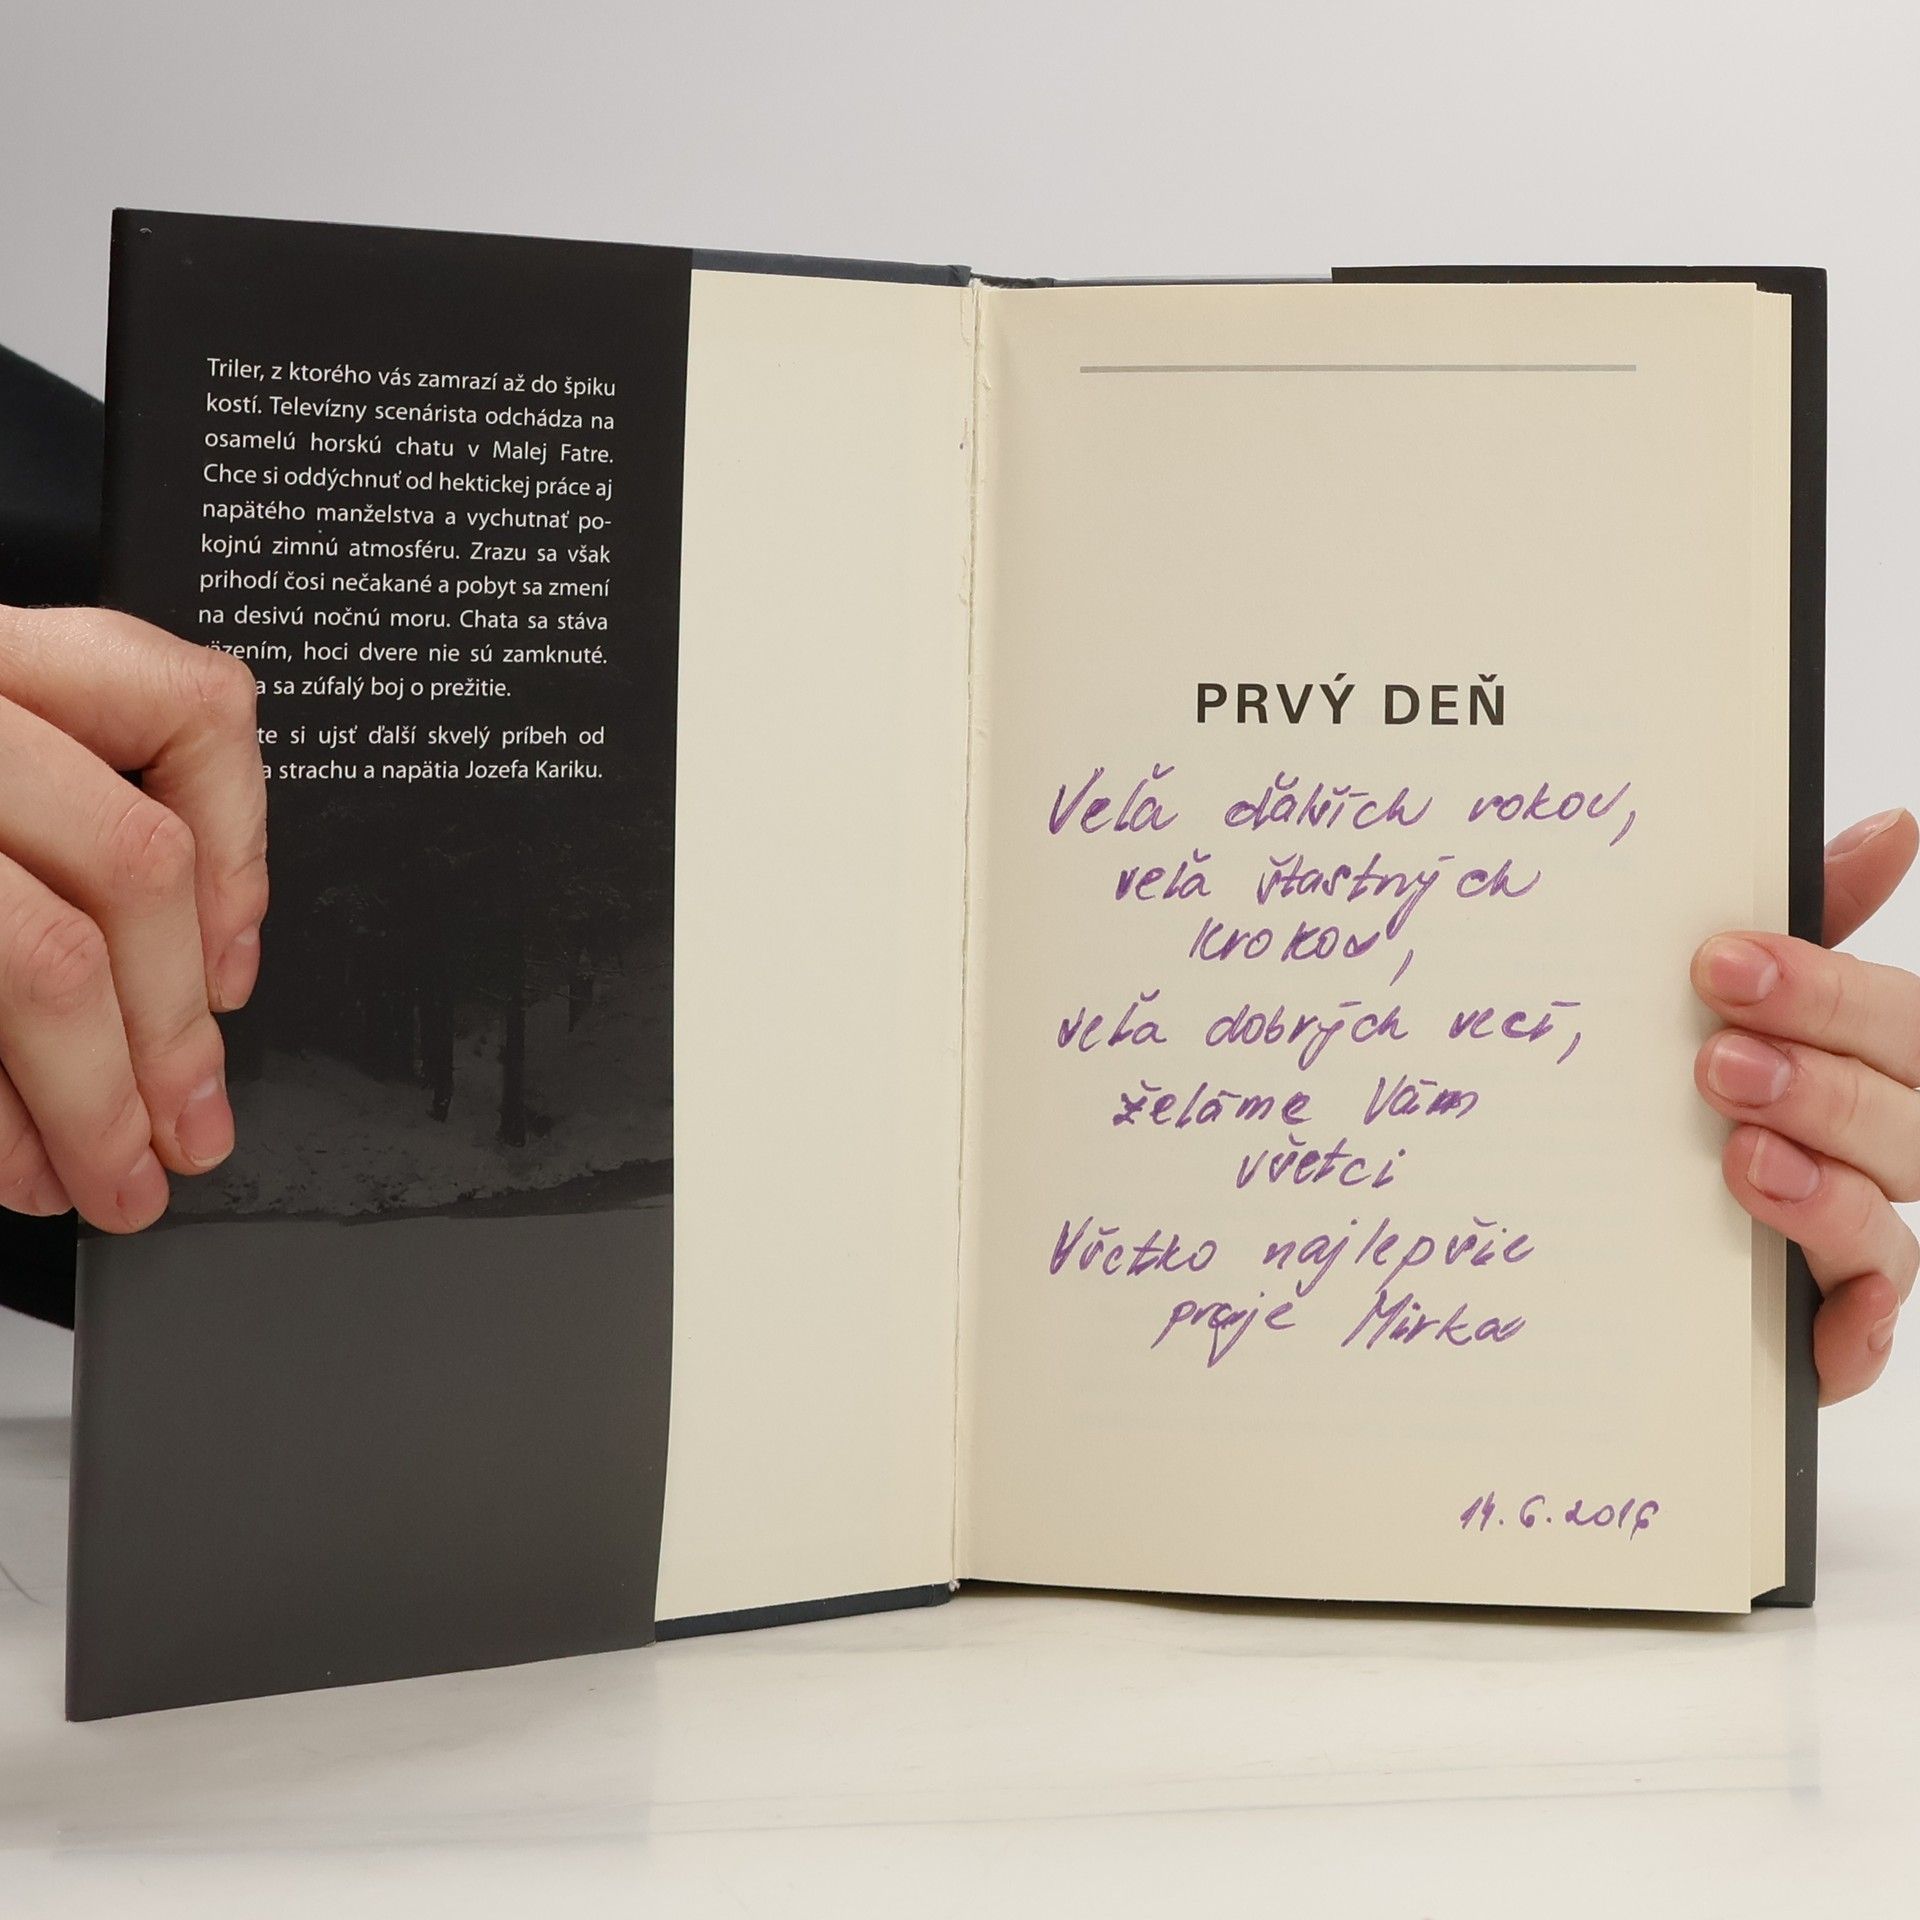 Triler, z ktorého vás zamrazí až do špiku
kostí. Televízny scenárista odchádza na
osamelú horskú chatu v Malej Fatre.
Chce si oddýchnuť od hektickej práce aj
napätého manželstva a vychutnať po-
kojnú zimnú atmosféru. Zrazu sa však
prihodí čosi nečakané a pobyt sa zmení
na desivú nočnú moru. Chata sa stáva
äzením, hoci dvere nie sú zamknuté.
a sa zúfalý boj o prežitie.
te si ujsť ďalší skvelý príbeh od
a strachu a napätia Jozefa Kariku.
PRVÝ DEŇ
Veľa ďalších rokov,
veľa šťastných
krokov,
veľa dobrých vecí,
želáme Vám
všetci
Všetko najlepšie
praje Mirka
14.6.2016